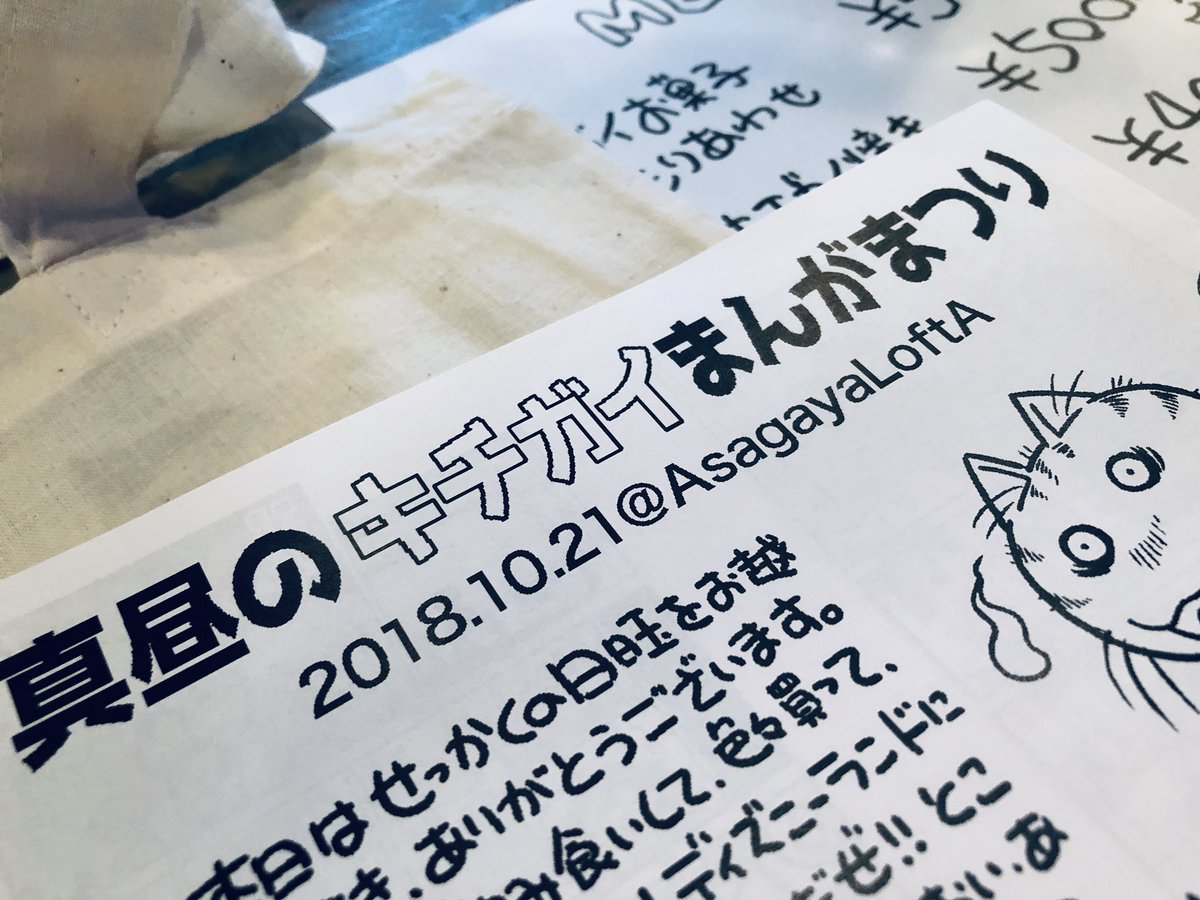 ¥500
イお菓子
りあわせ
真昼のキチガイまんがまつり
2018.10.21@AsagayaLoftA
本日はせっかくの日曜をお越
き、ありがとうございます。
み食いして、色々買って、
ディズニーランドに
だぜ!! とこ
ない、あ